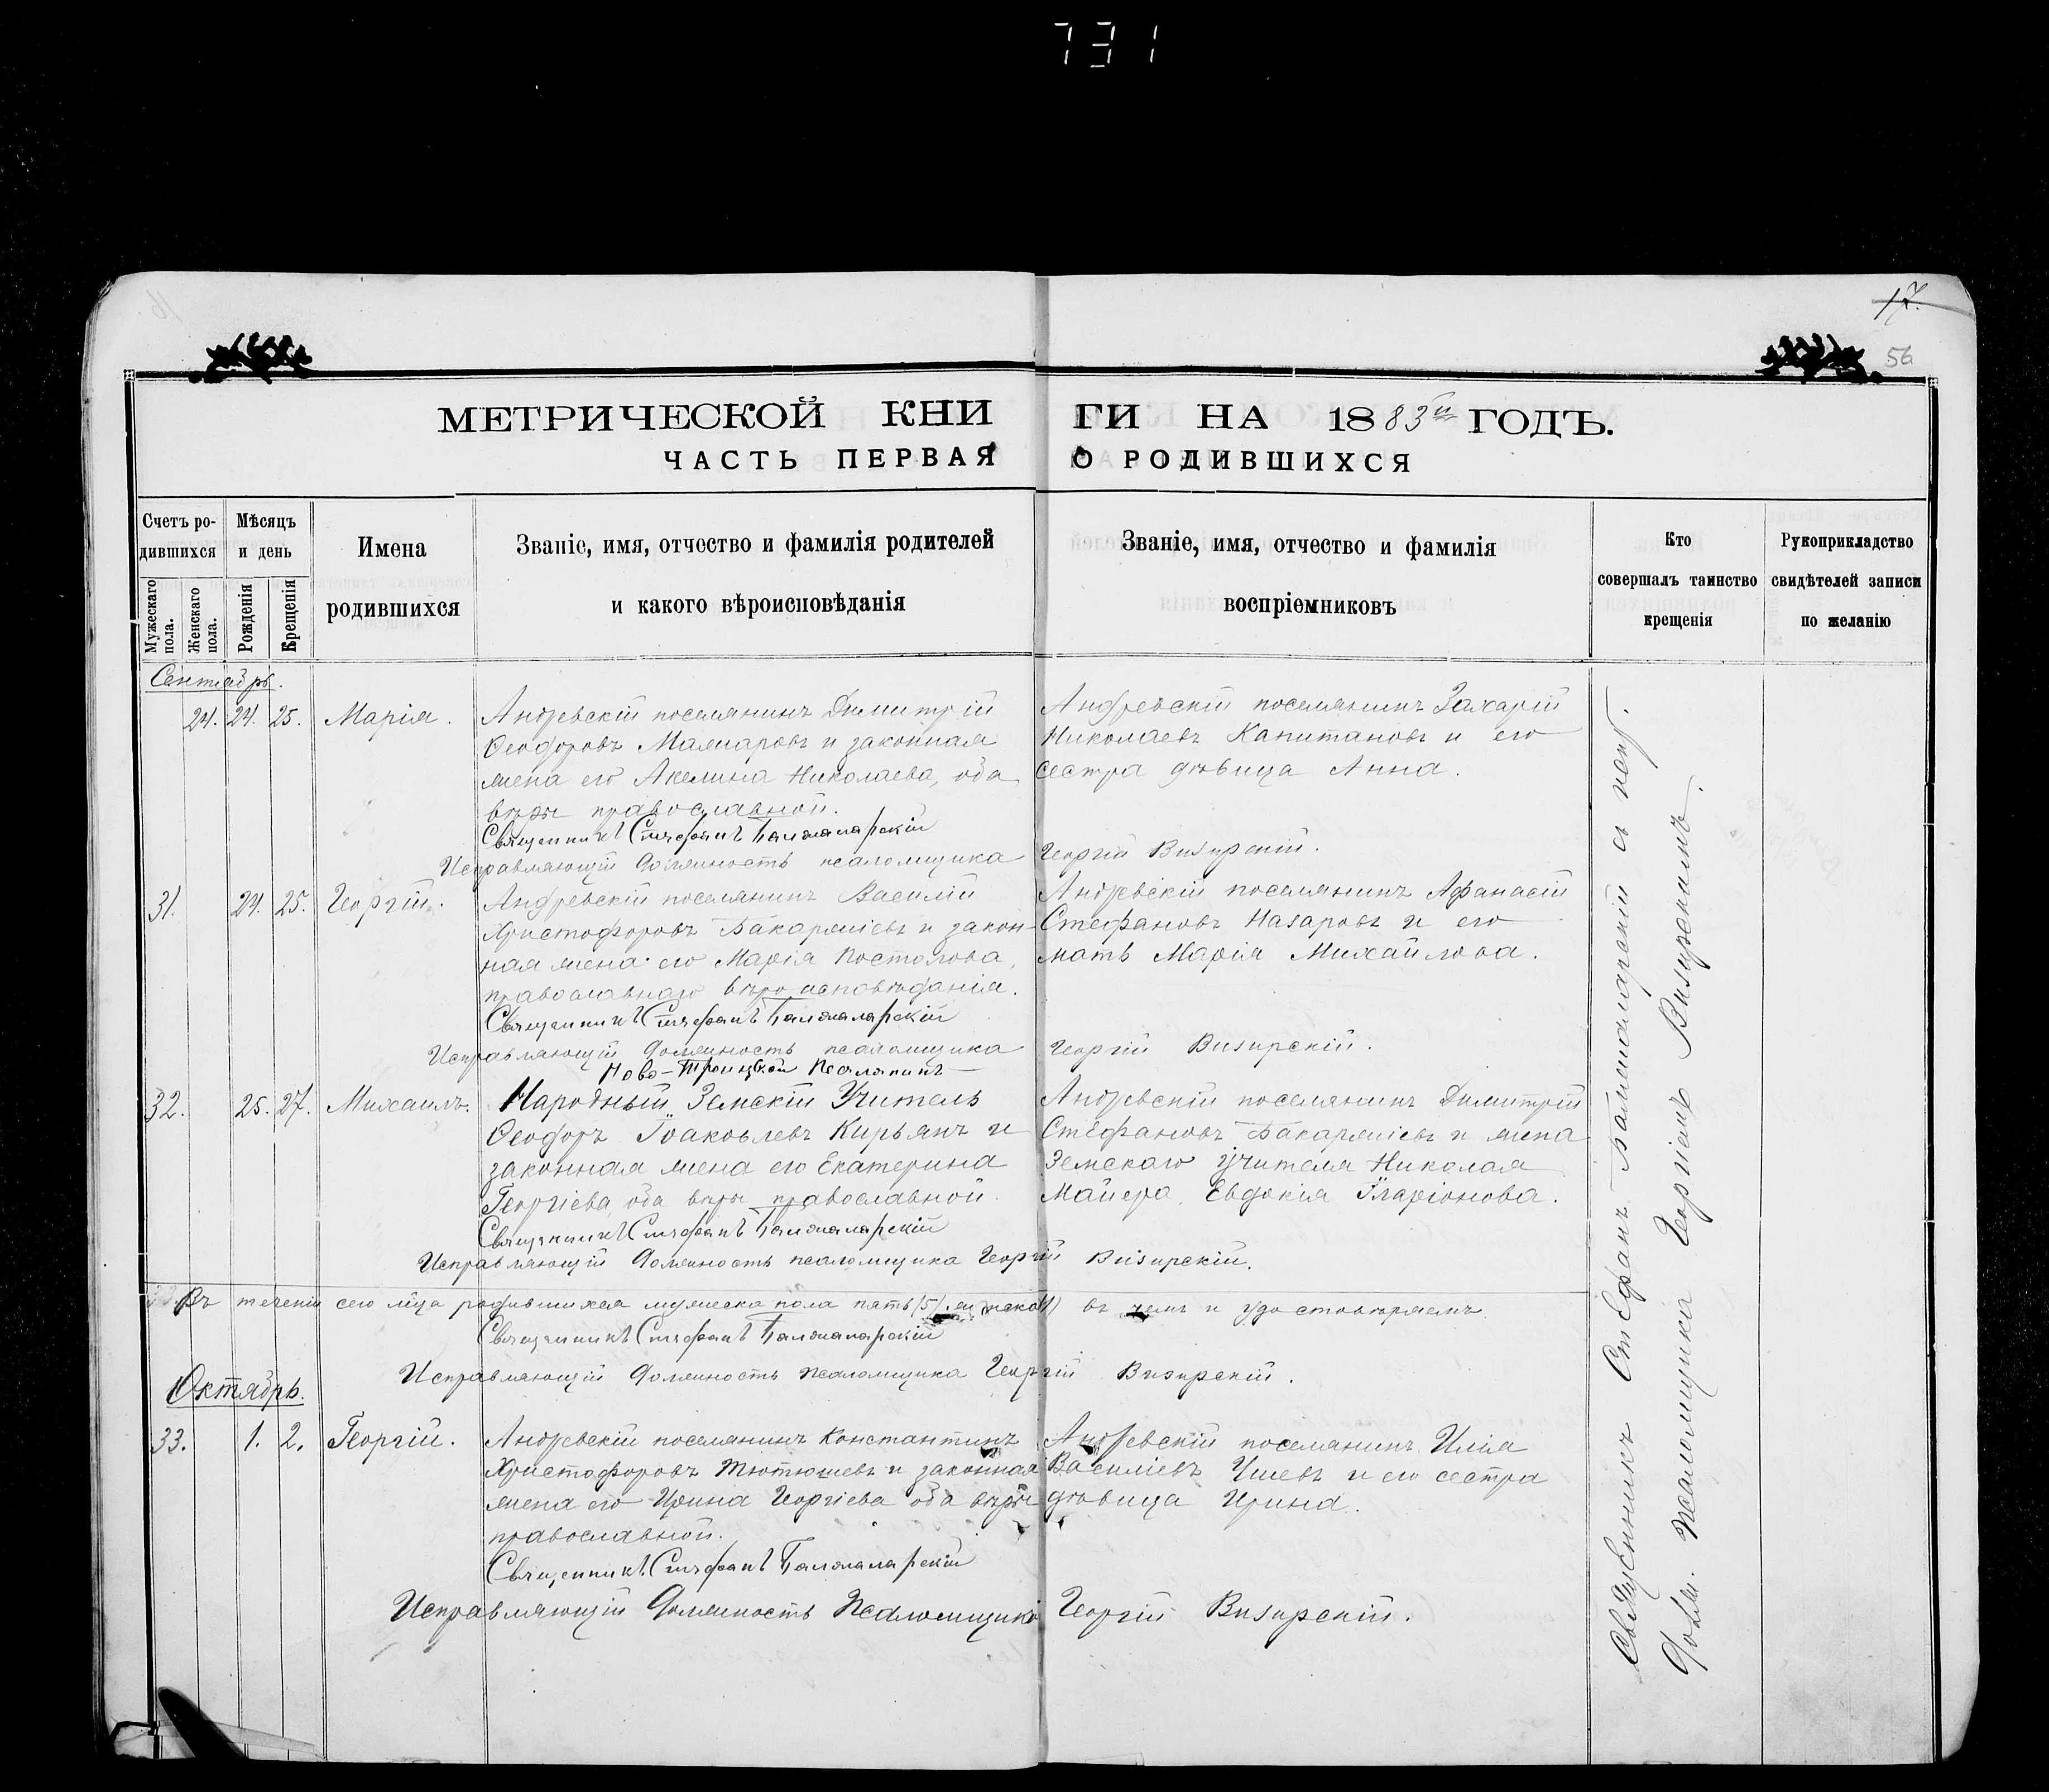 731
17.
56
МЕТРИЧЕСКОЙ КНИГИ НА 1883й ГОДЪ.
ЧАСТЬ ПЕРВАЯ О РОДИВШИХСЯ
Счетъ родившихся
Мужескаго пола.
Женскаго пола.
Мѣсяцъ и день
Рожденія
Крещенія
Имена
родившихся
Званіе, имя, отчество и фамилія родителей
и какого вѣроисповѣданія
Званіе, имя, отчество и фамилія
воспріемниковъ
Кто
совершалъ таинство
крещенія
Рукоприкладство
свидѣтелей записи
по желанію
Сентябрь.
24. 24. 25. Марія.
Андреевскій поселянинъ Димитрій
Ѳеодоровъ и законная
жена его Акелина Николаева, оба
вѣры православной.
Андреевскій поселянинъ Захарій
Николаевъ Капитановъ и его
сестра дѣвица Анна.
Священникъ Стефанъ
Исправляющій должность псаломщика Георгій Визирскій.
31. 24. 25. Георгій.
Андреевскій поселянинъ Василій
Христофоровъ Бакаржіевъ и закон-
ная жена его Марія Постолова,
православнаго вѣроисповѣданія.
Андреевскій поселянинъ Афанасій
Стефановъ Назаровъ и его
мать Марія Михайлова.
Священникъ Стефанъ
Исправляющій должность псаломщика Георгій Визирскій.
Ново-Троицкой Поселянинъ
32. 25. 27. Михаилъ.
Народный Земскій Учитель
Ѳеодоръ Іоаковлевъ Кирьякъ и
законная жена его Екатерина
Георгіева, оба вѣры православной.
Андреевскій поселянинъ Димитрій
Стефановъ Бакаржіевъ и жена
Земскаго учителя Николая
Майера, Евдокія Иларіонова.
Священникъ Стефанъ
Исправляющій должность псаломщика Георгій Визирскій.
Въ теченіи сего мѣца родившихся мужеска пола пять (5) въ чемъ и удостовѣряемъ
Священникъ Стефанъ
Исправляющій должность псаломщика Георгій Визирскій.
Октябрь.
33. 1. 2. Георгій.
Андреевскій поселянинъ Константинъ
Христофоровъ Тютюшевъ и законная
жена его Ирина Георгіева оба вѣры
православной.
Андреевскій поселянинъ Илія
Василіевъ и его сестра
дѣвица Ирина.
Священникъ Стефанъ
Исправляющій должность Псаломщика Георгій Визирскій.
Священникъ Стефанъ
Псаломщика Георгій